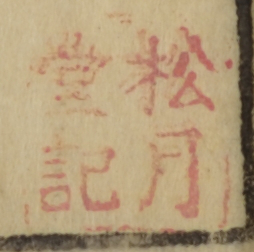 松月
堂記